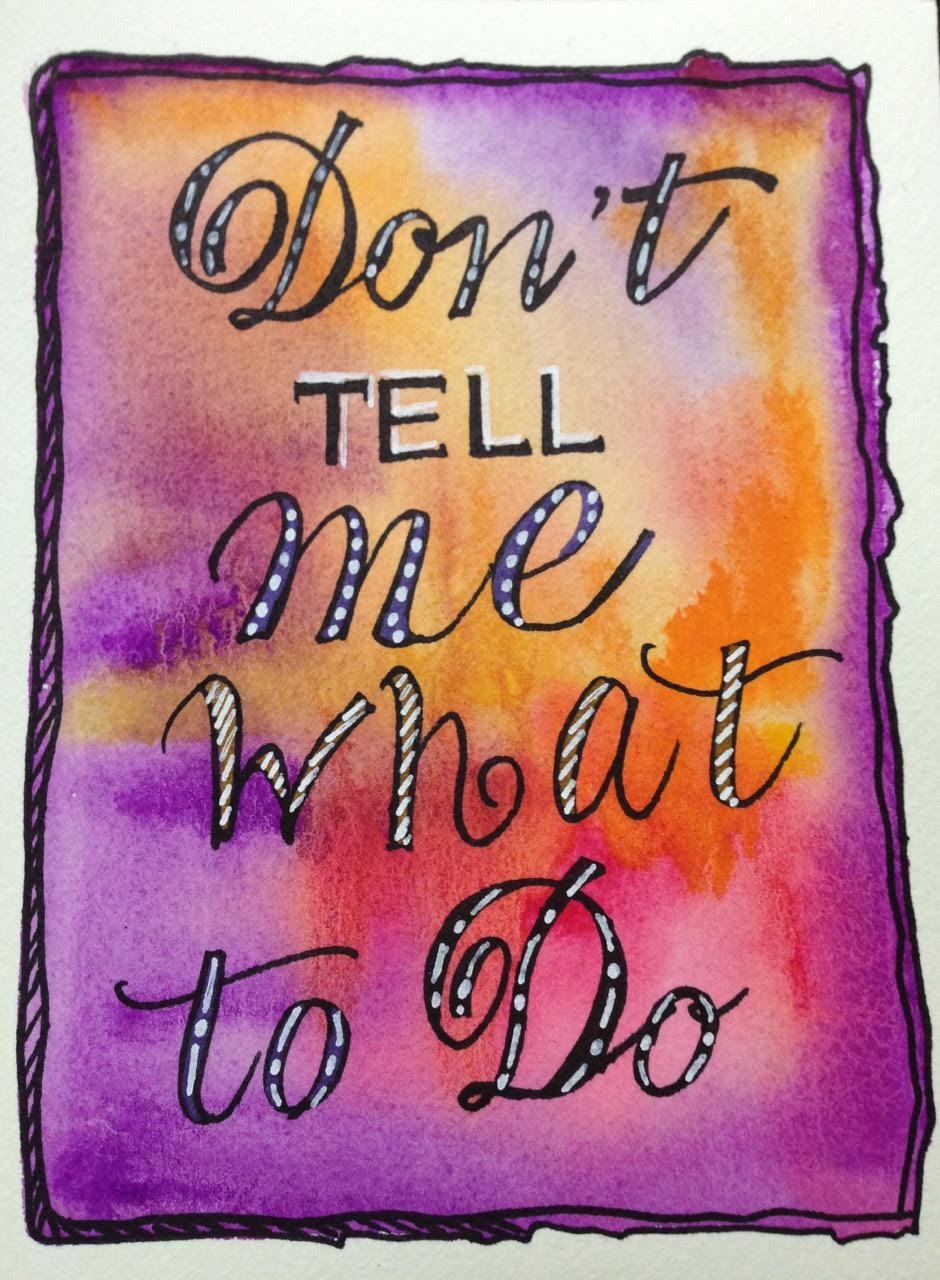 Don't
TELL
me
what
to Do